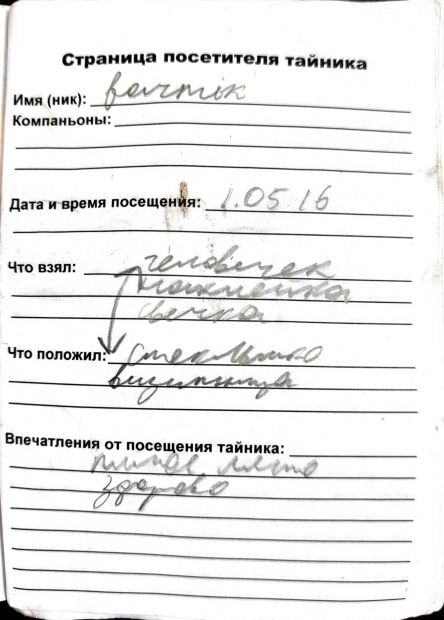 Страница посетителя тайника
Имя (ник):
Компаньоны:
Дата и время посещения: 1.05 16
Что взял: человечек
наклейка
свечка
Что положил: стекляшка
визитница
Впечатления от посещения тайника:
здорово